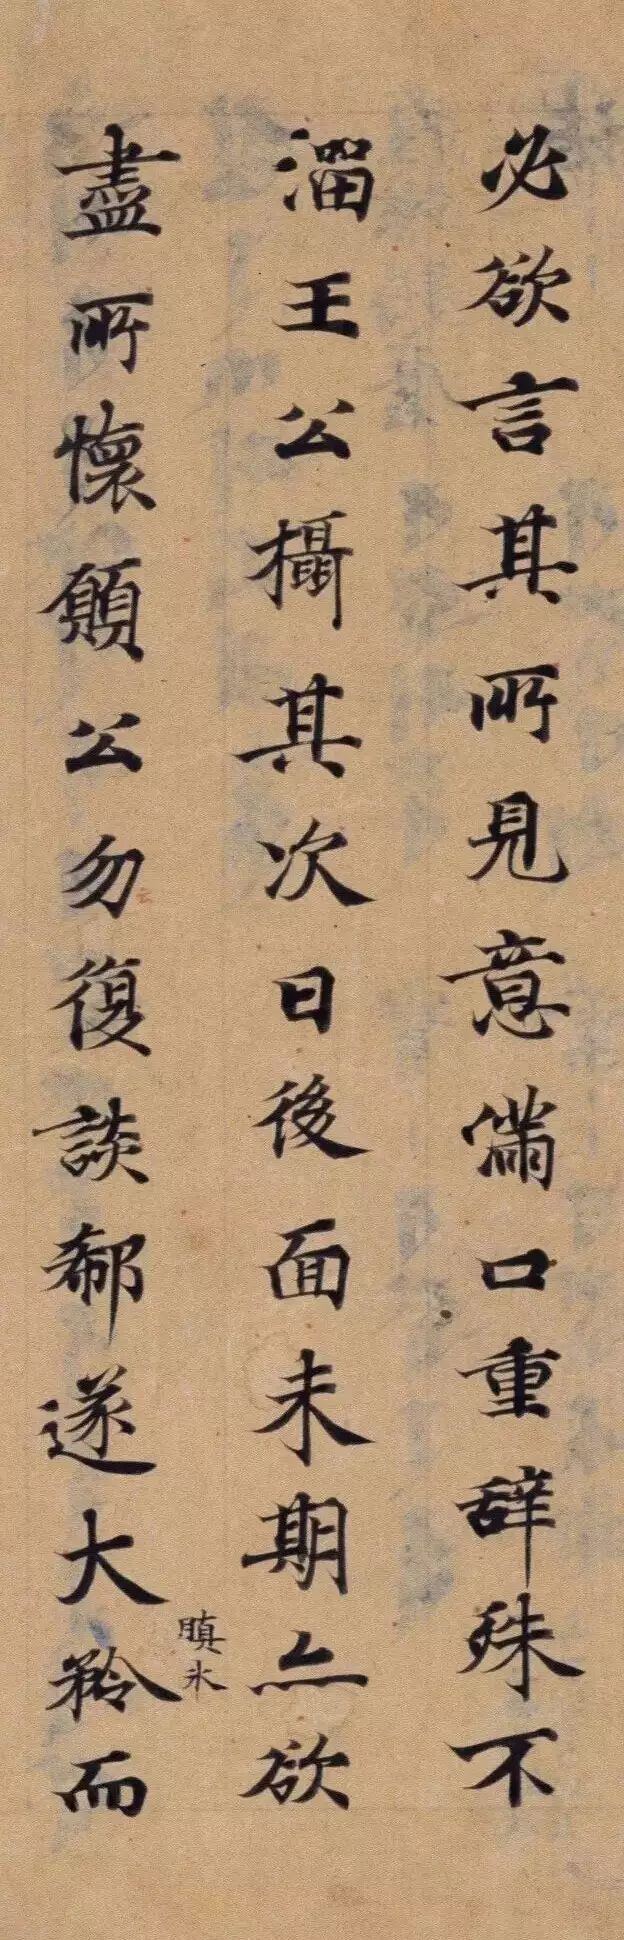 必欲言其所見意滿口重辞殊不
溜王公攝其次日後面未期亦欲
盡所懷願公勿復談郗遂大瞋氷矜而